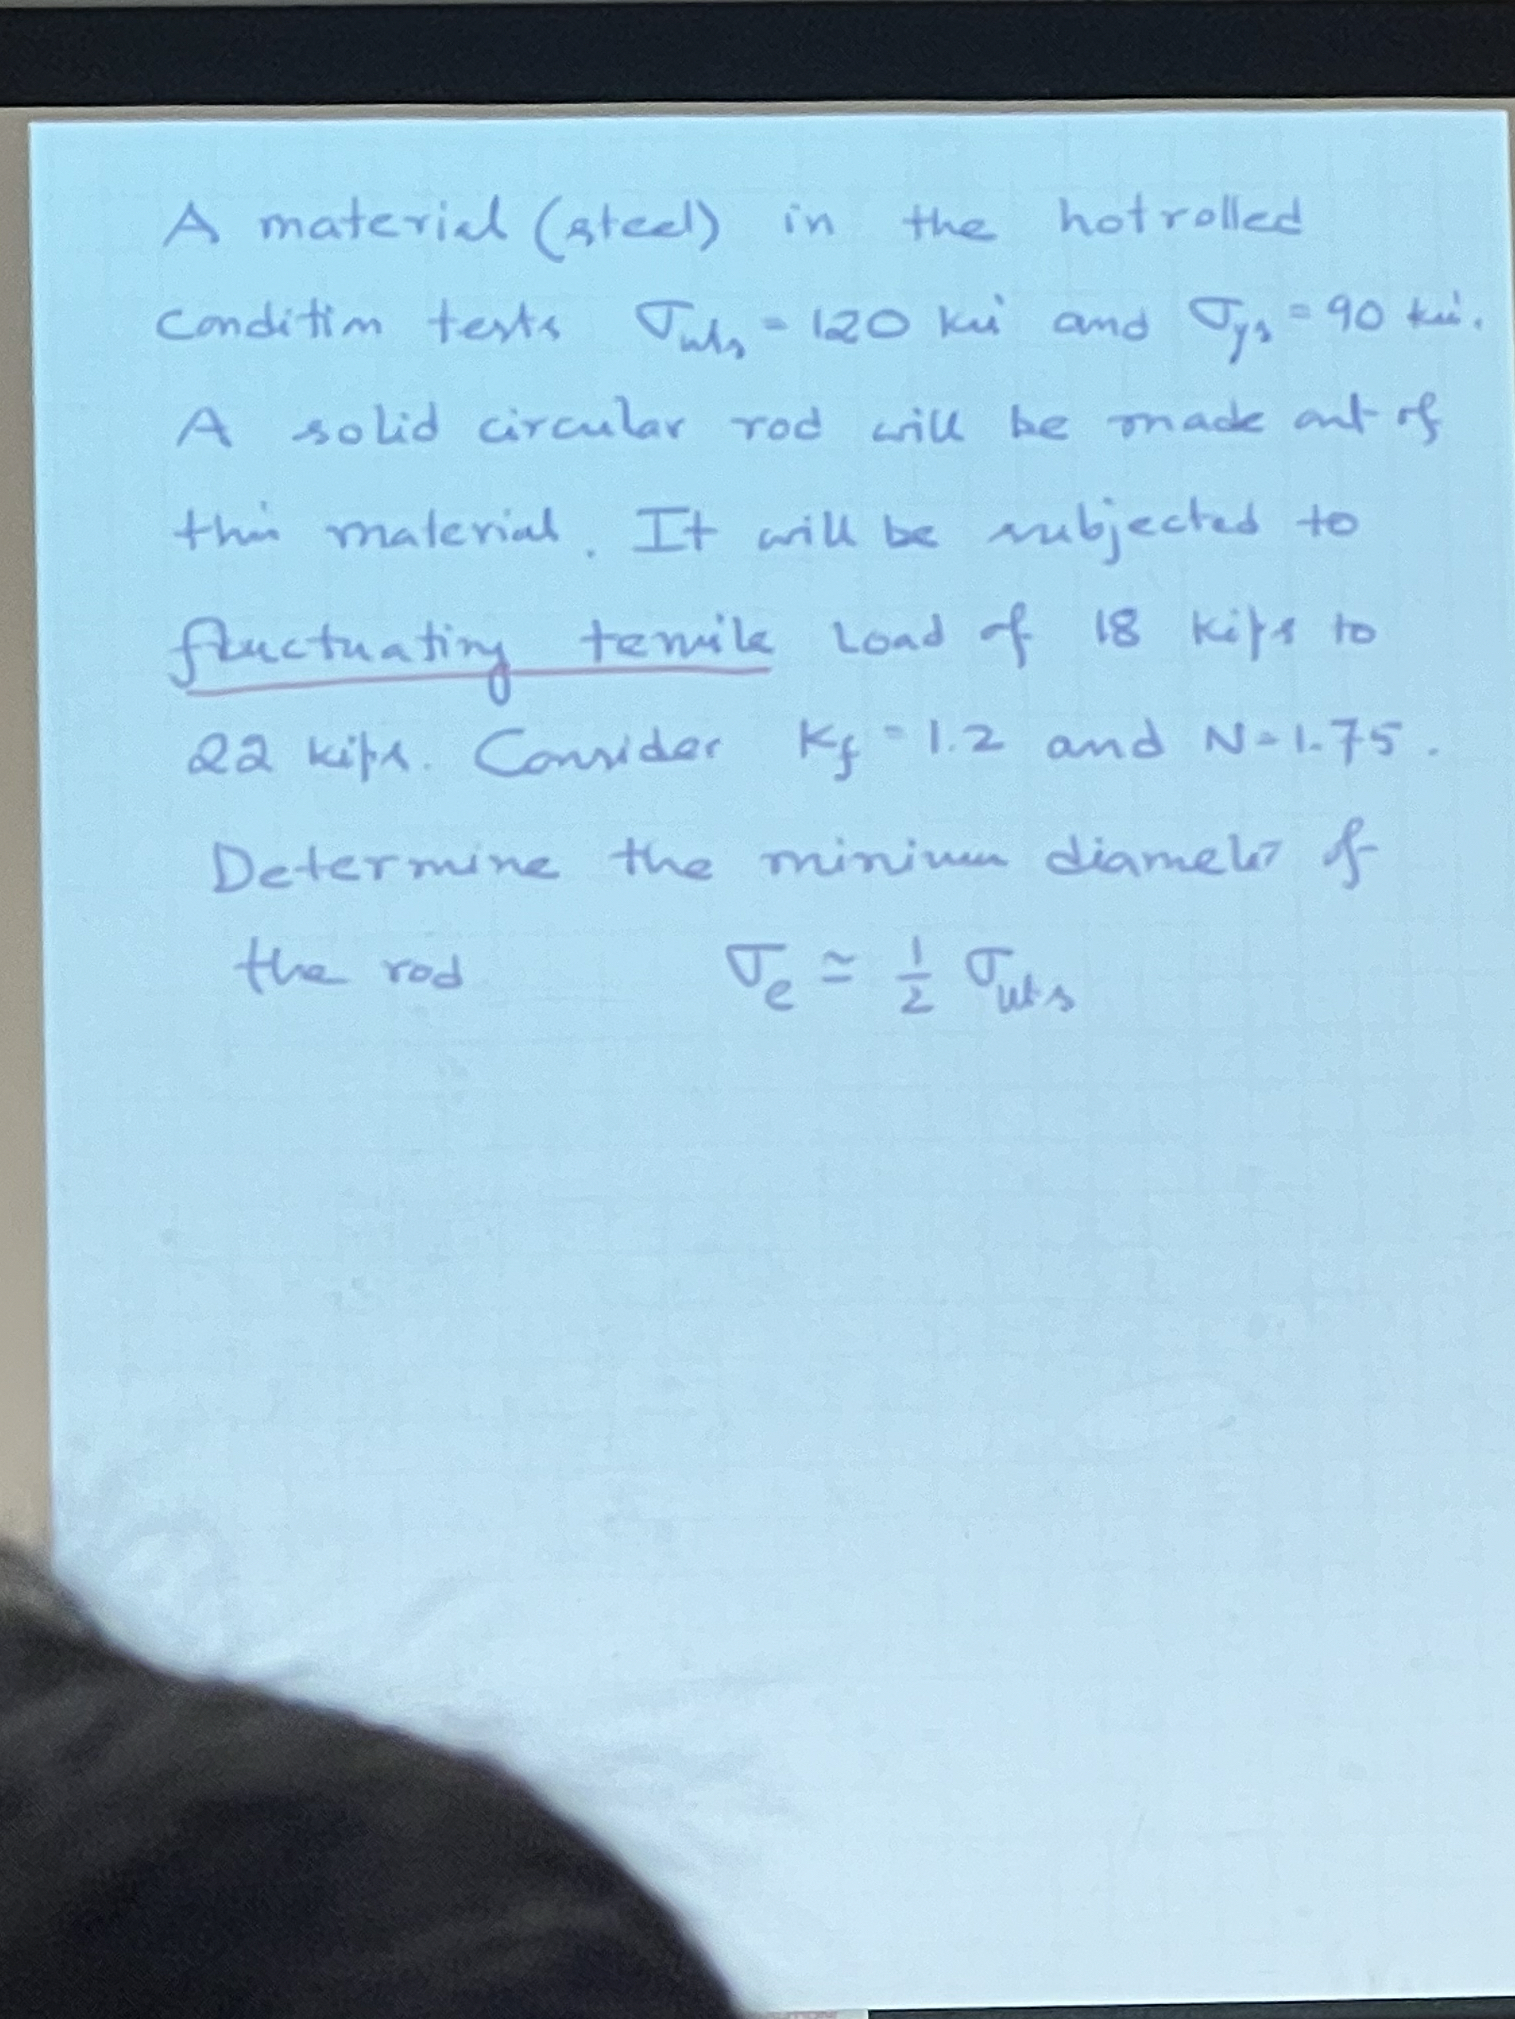 A material (steel) in the hot rolled
condition tests σuts = 120 ksi and σys = 90 ksi.
A solid circular rod will be made out of
this material. It will be subjected to
fluctuating tensile load of 18 kips to
22 kips. Consider Kf = 1.2 and N = 1.75.
Determine the minimum diameter of
the rod σe ≃ 1/2 σuts